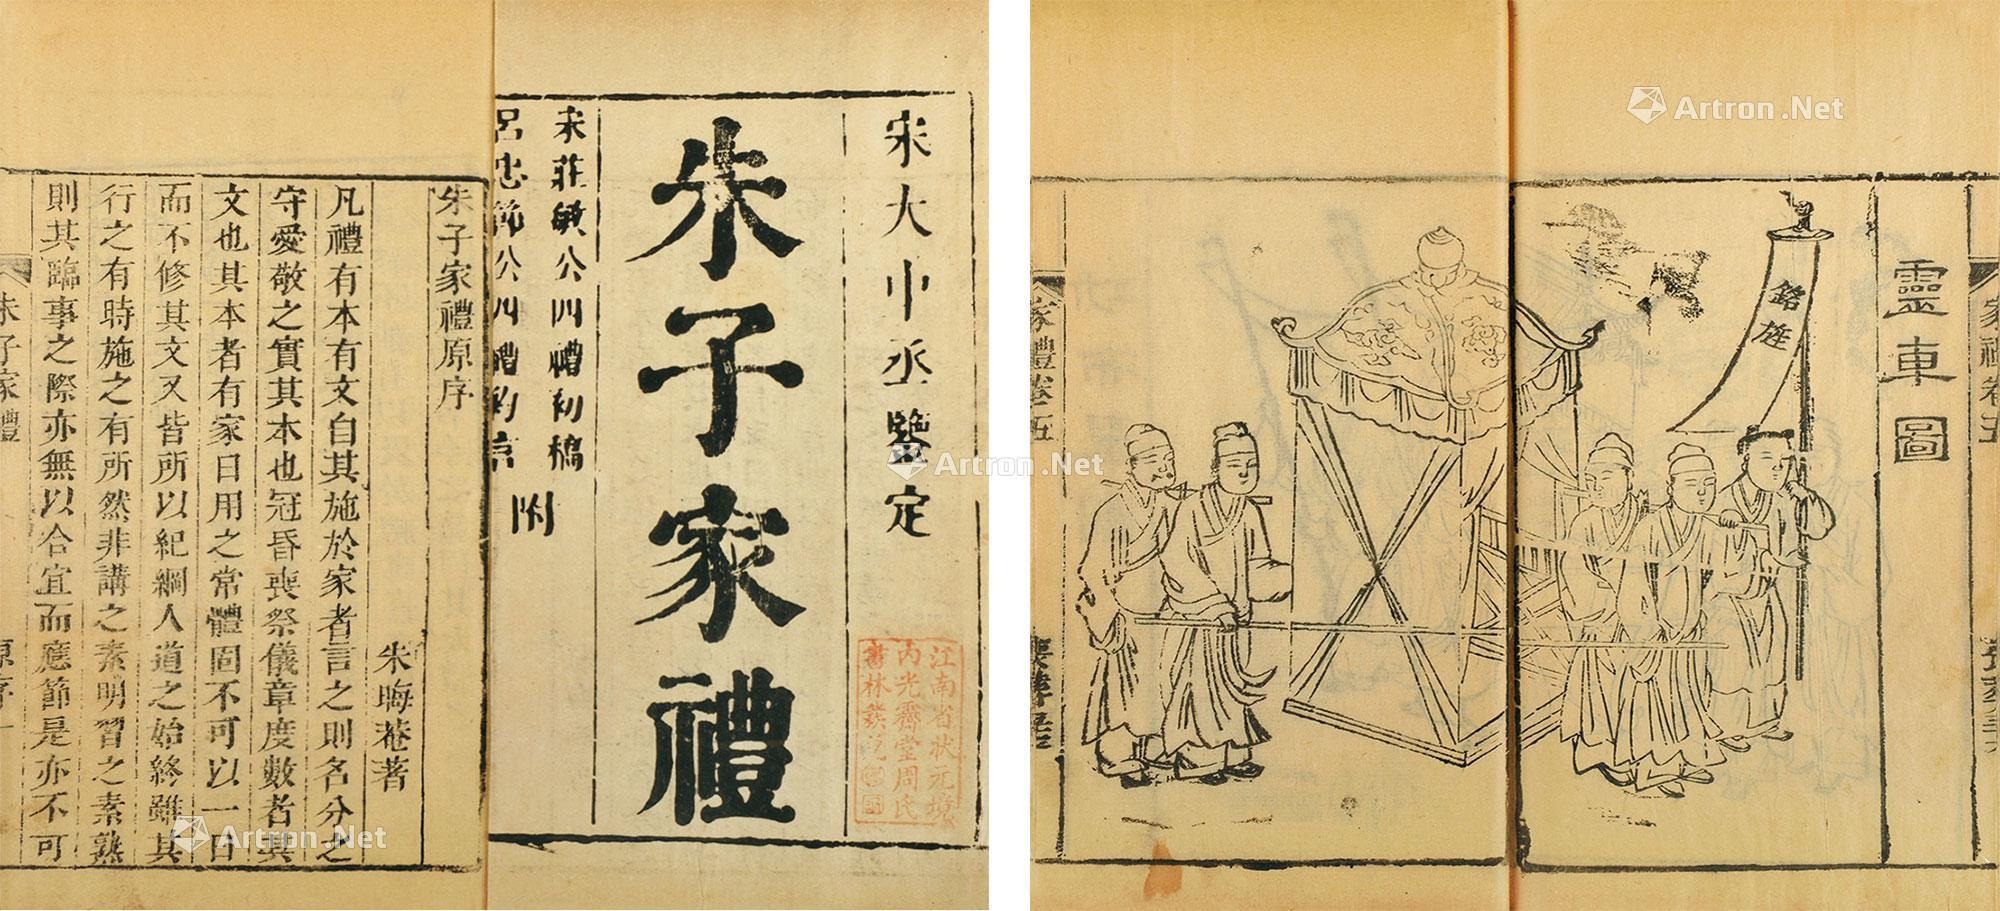 宋大中丞鑒定
朱子家禮
宋莊敏公四禮初稿
呂忠節公四禮約言
附
江南省狀元境
內光霽堂周氏
書林發兌
朱子家禮原序
朱晦菴著
凡禮有本有文自其施於家者言之則名分之
守愛敬之實其本也冠昏喪祭儀章度數者其
文也其本者有家日用之常體固不可以一日
而不修其文又皆所以紀綱人道之始終雖其
行之有時施之有所然非講之素明習之素熟
則其臨事之際亦無以合宜而應節是亦不可
朱子家禮
原序一
家禮卷五
靈車圖
銘旌
家禮卷五
Artron.Net
Artron.Net
Artron.Net